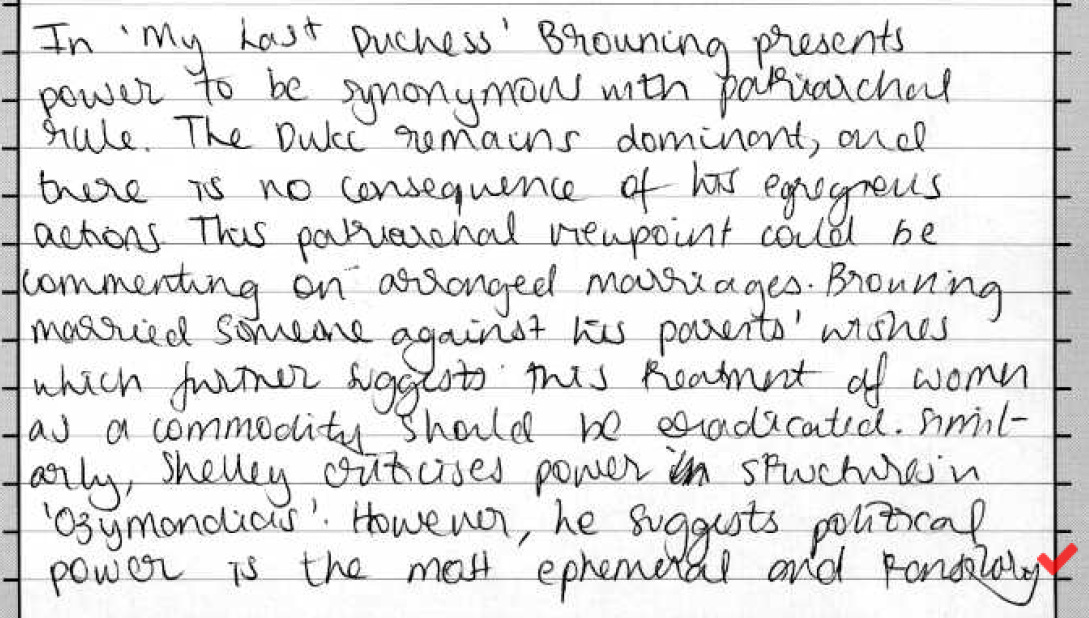 In 'My Last Duchess' Browning presents
power to be synonymous with patriarchal
rule. The Duke remains dominant, and
there is no consequence of his egregreous
actions. This patriarchal viewpoint could be
commenting on arranged marriages. Browning
married someone against his parents' wishes
which further suggests this treatment of women
as a commodity should be eradicated. Simil-
arly, Shelley criticises power in structures in
'Ozymandias'. However, he suggests political
power is the most ephemeral and